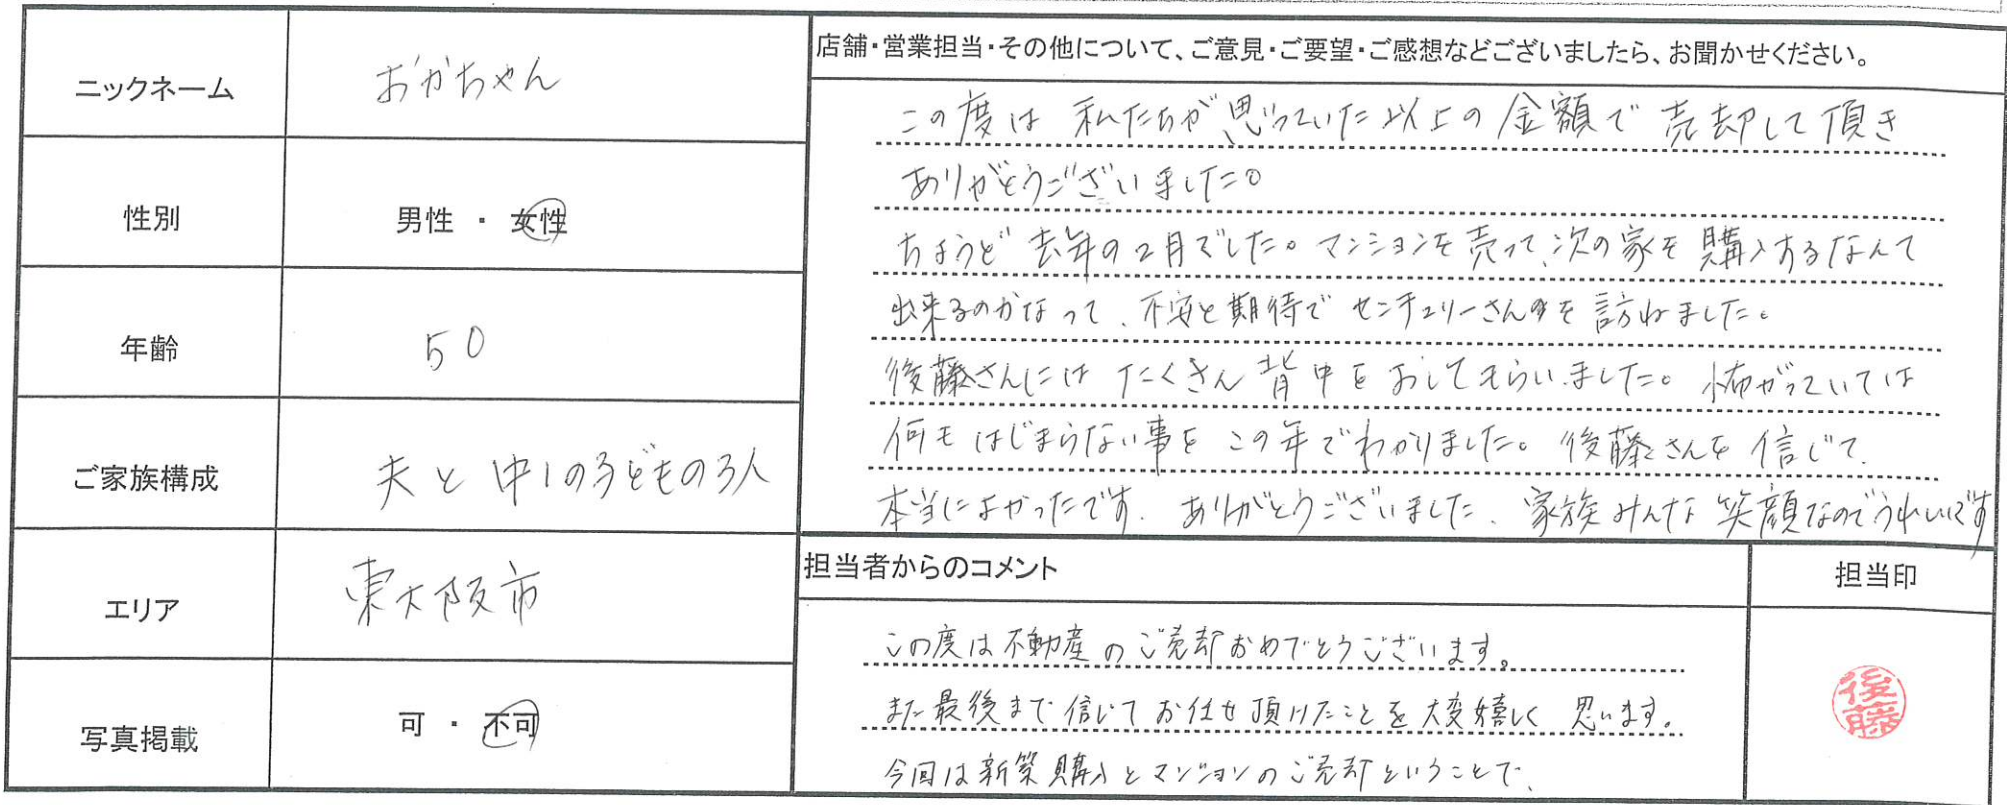 ニックネーム
おかちゃん
性別
男性 ・ 女性
年齢
50
ご家族構成
夫と中1の子どもの3人
エリア
東大阪市
写真掲載
可 ・ 不可
店舗・営業担当・その他について、ご意見・ご要望・ご感想などございましたら、お聞かせください。
この度は 私たちが思っていた以上の金額で売却して頂き
ありがとうございました。
ちょうど去年の2月でした。マンションを売って、次の家を購入するなんて
出来るのかなって、不安と期待でセンチュリーさんを訪ねました。
後藤さんにはたくさん背中をおしてもらいました。怖がっていては
何もはじまらない事をこの年でわかりました。後藤さんを信じて
本当によかったです。ありがとうございました。家族みんな笑顔なのでうれしいです
担当者からのコメント
この度は不動産のご売却おめでとうございます。
また最後まで信じてお任せ頂けたことを大変嬉しく思います。
今回は新築購入とマンションのご売却ということで、
担当印
後藤